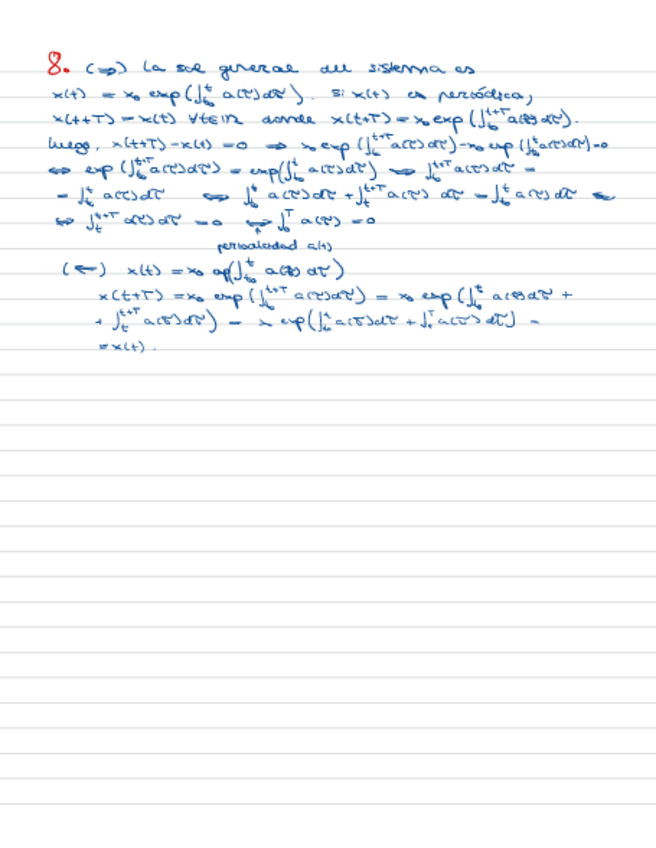 8. (⇒) La sol general del sistema es
x(t) = x₀ exp(∫_{t₀}^{t} a(τ)dτ). Si x(t) es periódica,
x(t+T) = x(t) ∀t∈ℝ donde x(t+T) = x₀ exp(∫_{t₀}^{t+T} a(τ)dτ).
Luego, x(t+T) - x(t) = 0 ⇒ x₀ exp(∫_{t₀}^{t+T} a(τ)dτ) - x₀ exp(∫_{t₀}^{t} a(τ)dτ) = 0
⇔ exp(∫_{t₀}^{t+T} a(τ)dτ) = exp(∫_{t₀}^{t} a(τ)dτ) ⇔ ∫_{t₀}^{t+T} a(τ)dτ =
= ∫_{t₀}^{t} a(τ)dτ ⇔ ∫_{t₀}^{t} a(τ)dτ + ∫_{t}^{t+T} a(τ) dτ = ∫_{t₀}^{t} a(τ)dτ ⇔
⇔ ∫_{t}^{t+T} a(τ)dτ = 0 ⇔ ∫_{0}^{T} a(τ) = 0
periodicidad a(t)
(⇐) x(t) = x₀ exp(∫_{t₀}^{t} a(τ) dτ)
x(t+T) = x₀ exp(∫_{t₀}^{t+T} a(τ)dτ) = x₀ exp(∫_{t₀}^{t} a(τ)dτ +
+ ∫_{t}^{t+T} a(τ)dτ) = x₀ exp(∫_{t₀}^{t} a(τ)dτ + ∫_{0}^{T} a(τ)dτ) =
= x(t).